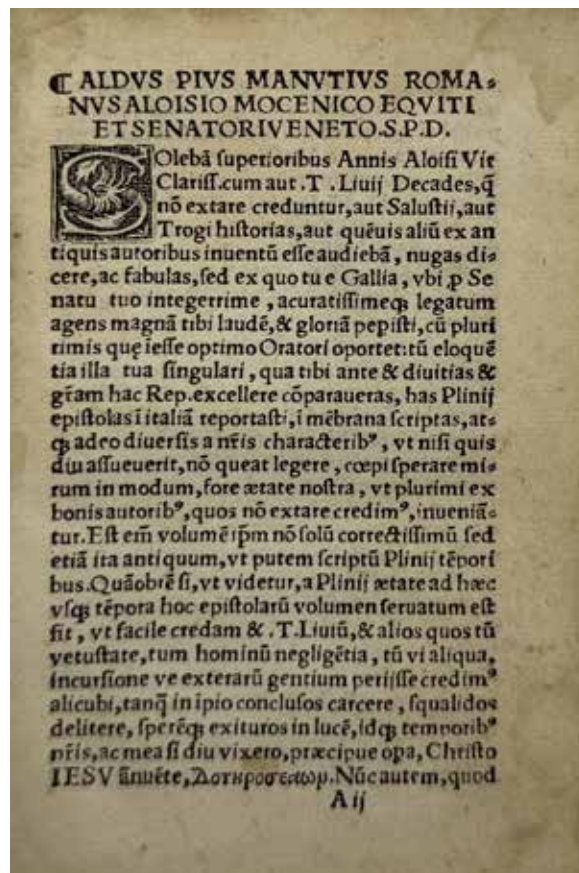 ☾ ALDVS PIVS MANVTIVS ROMA⸗
NVS ALOISIO MOCENICO EQVITI
ET SENATORI VENETO.S.P.D.
SOlebā superioribus Annis Aloisi Vir
Clariss.cum aut .T .Liuij Decades,q̄
nō extare creduntur,aut Salustij,aut
Trogi historias,aut quēuis aliū ex an
tiquis autoribus inuentū esse audiebā, nugas di⸗
cere,ac fabulas,sed ex quo tu e Gallia, vbi ꝓ Se
natu tuo integerrime , acuratissimeq; legatum
agens magnā tibi laudē,& gloriā pepisti,cū pluri
rimis quę iesse optimo Oratori oportet:tū eloquē
tia illa tua singulari , qua tibi ante & diuitias &
gr̄am hac Rep.excellere cōparaueras, has Plinij
epistolas ī italiā reportasti,ī mēbrana scriptas,at⸗
q; adeo diuersis a nr̄is characterib⁹, vt nisi quis
diu assueuerit,nō queat legere , cœpi sperare mi⸗
rum in modum,fore ætate nostra , vt plurimi ex
bonis autorib⁹,quos nō extare credim⁹,inueniā⸗
tur.Est em̄ volumē ip̄m nō solū correctissimū sed
etiā ita antiquum,vt putem scriptū Plinij tēpori
bus.Quāobrē si,vt videtur,a Plinij ætate ad hæc
vsq; tēpora hoc epistolarū volumen seruatum est
fit , vt facile credam & .T.Liuiū,& alios quos tū
vetustate,tum hominū negligētia , tū vi aliqua,
incursione ve exterarū gentium perijsse credim⁹
alicubi,tanq̄ in ipio conclusos carcere , squalidos
delitere, sperēq; exituros in lucē,idq; temporib⁹
nr̄is,ac mea si diu vixero,præcipue opa, Christo
IESV ānuēte, Nūc autem,quod
A ij